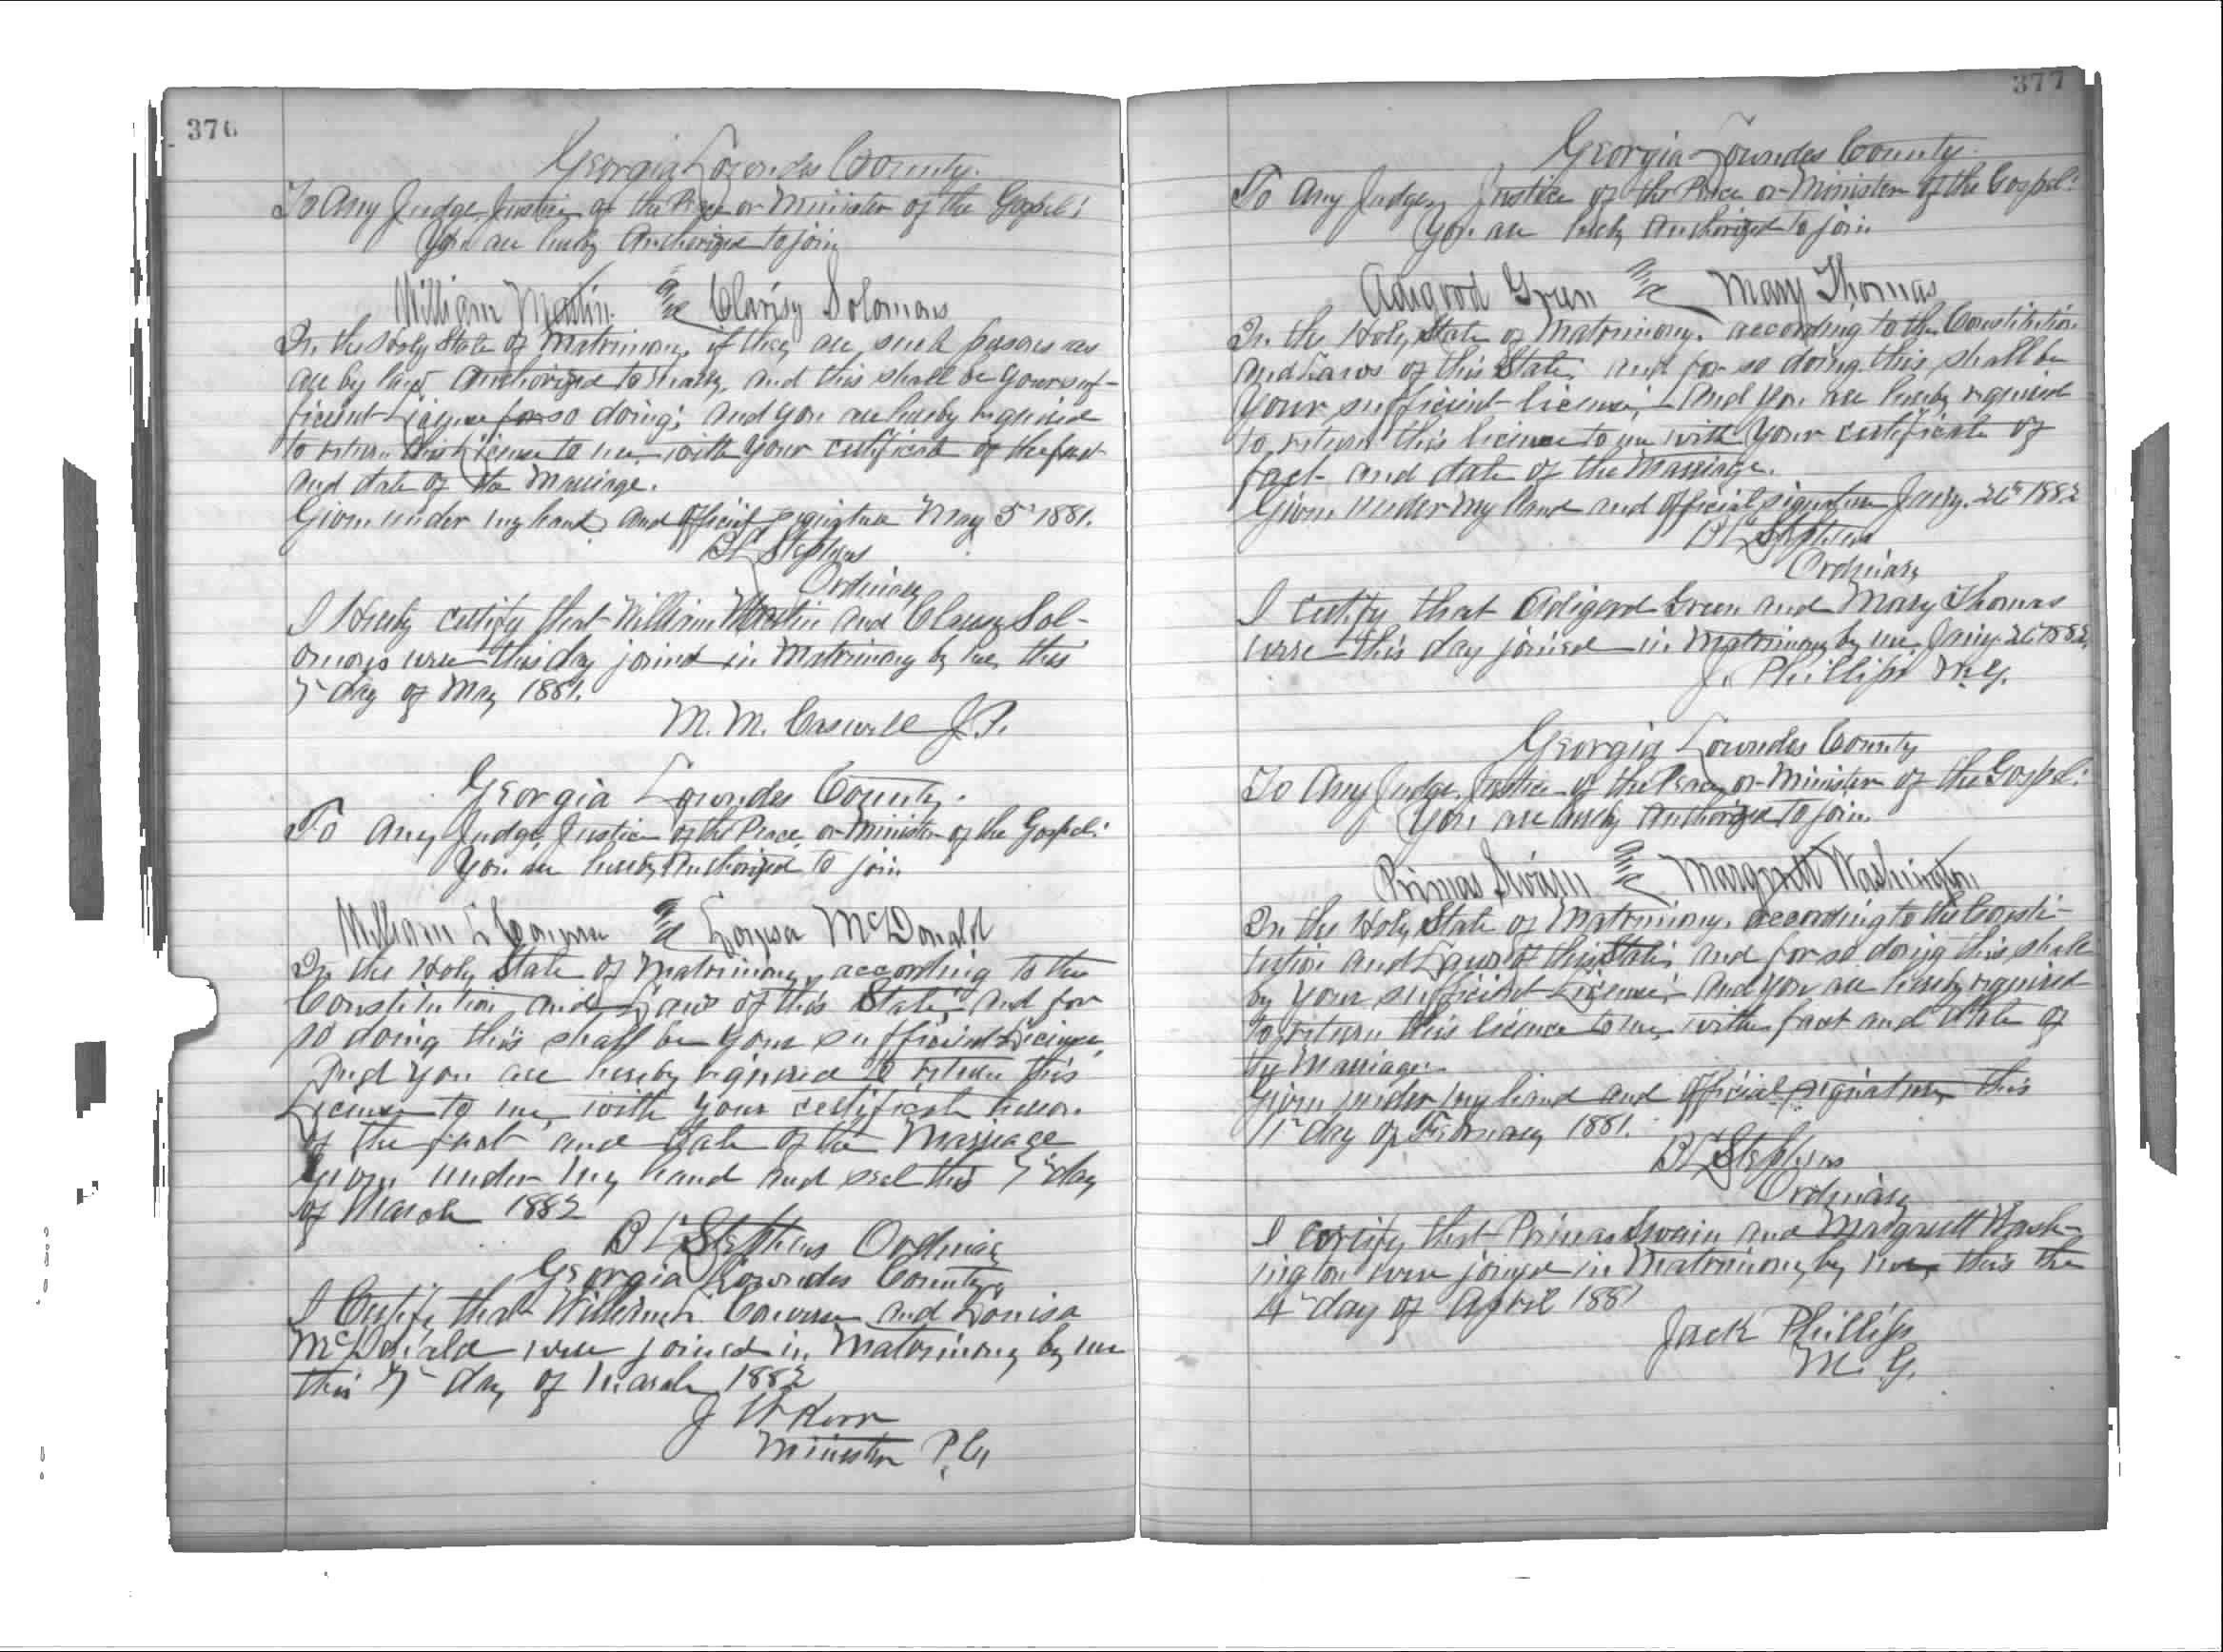 376
Georgia Lowndes County.
To Any Judge, Justice of the Peace or Minister of the Gospel:
You are hereby Authorized to join
William Martin and Clarisy Solomons
In the Holy State of Matrimony, if they are such persons as
are by law Authorized to marry, and this shall be your suf-
ficient License for so doing; and you are hereby required
to return this License to me with your certificate of the fact
and date of the Marriage.
Given under my hand and official signature May 5th 1881.
Stephens
Ordinary
I Hereby certify that William Martin and Clarisy Sol-
omons were this day joined in Matrimony by me, this
day of May 1881.
M. M. Caswell J.P.
Georgia Lowndes County.
To Any Judge, Justice of the Peace, or Minister of the Gospel:
You are hereby Authorized to join
William L Converse and Louisa McDonald
In the Holy State of Matrimony, according to the
Constitution and Laws of this State, and for
so doing this shall be your sufficient License,
And you are hereby required to return this
License to me, with your certificate hereon
of the fact and date of the Marriage
Given under my hand and seal this 7th day
of March 1882
Stephens Ordinary
Georgia Lowndes County
I Certify that William L. Converse and Louisa
McDonald were joined in Matrimony by me
this 7th day of March 1882
J W
Minister
377
Georgia Lowndes County.
To Any Judge, Justice of the Peace or Minister of the Gospel:
You are hereby Authorized to join
Adigood Green and Mary Thomas
In the Holy State of Matrimony, according to the Constitution
And Laws of this State, and for so doing this shall be
Your sufficient license; And you are hereby required
to return this license to me with your certificate of
fact and date of the Marriage.
Given under my hand and official signature Jany. 26th 1882
Stephens
Ordinary
I certify that Adigood Green and Mary Thomas
were this day joined in Matrimony by me. Jany. 26 1882.
J. Phillips M.G.
Georgia Lowndes County
To Any Judge, Justice of the Peace, or Minister of the Gospel:
You are hereby Authorized to join
Primas Swain and Margrett Washington
In the Holy State of Matrimony, according to the Consti-
tution and Laws of this State; and for so doing this shall
by your sufficient License; And you are hereby required
to return this licence to me, with fact and date of
the Marriage.
Given under my hand and official signature this
1st day of February 1881.
Stephens
Ordinary
I certify that Primas Swain and Margrett Wash-
ington were joined in Matrimony by me, this the
4th day of April 1881
Jack Phillips
M. G.